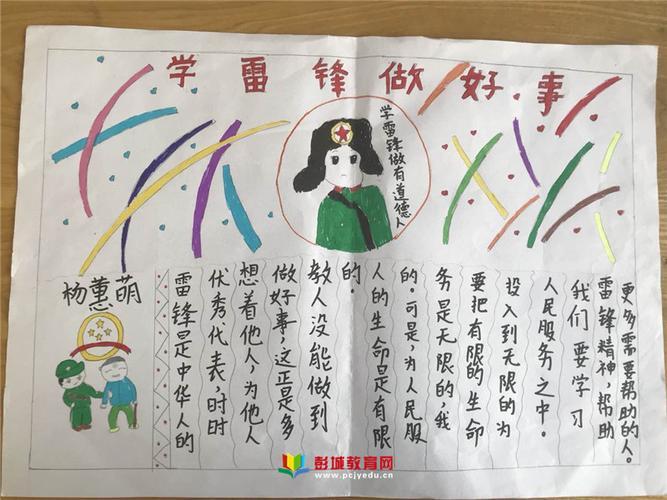 学雷锋做好事
学雷锋做有道德人
杨蕙萌
雷锋是中华人的
伏秀代表,时时
想着他人,为他人
做好事,这正是多
教人没能做到
的。
人的生命是有限
的。可是,为人民服
务是无限的,我
要把有限的生命
投入到无限的为
人民服务之中。
我们要学习
雷锋精神,帮助
更多需要帮助的人。
彭城教育网
www.pcjyedu.cn